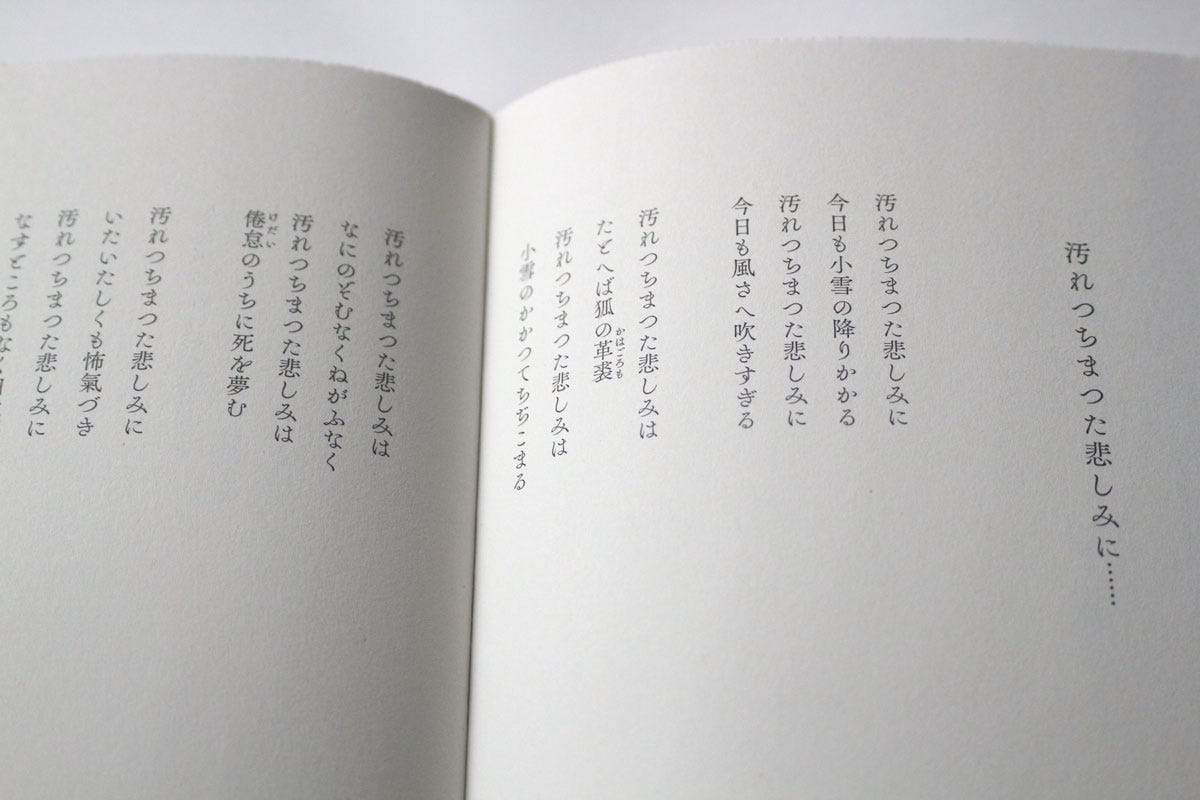 汚れつちまつた悲しみに……
汚れつちまつた悲しみに
今日も小雪の降りかかる
汚れつちまつた悲しみに
今日も風さへ吹きすぎる
汚れつちまつた悲しみは
たとへば狐の革裘
かはごろも
汚れつちまつた悲しみは
小雪のかかつてちぢこまる
汚れつちまつた悲しみは
なにのぞむなくねがふなく
汚れつちまつた悲しみは
倦怠のうちに死を夢む
けだい
汚れつちまつた悲しみに
いたいたしくも怖氣づき
汚れつちまつた悲しみに
なすところもなく